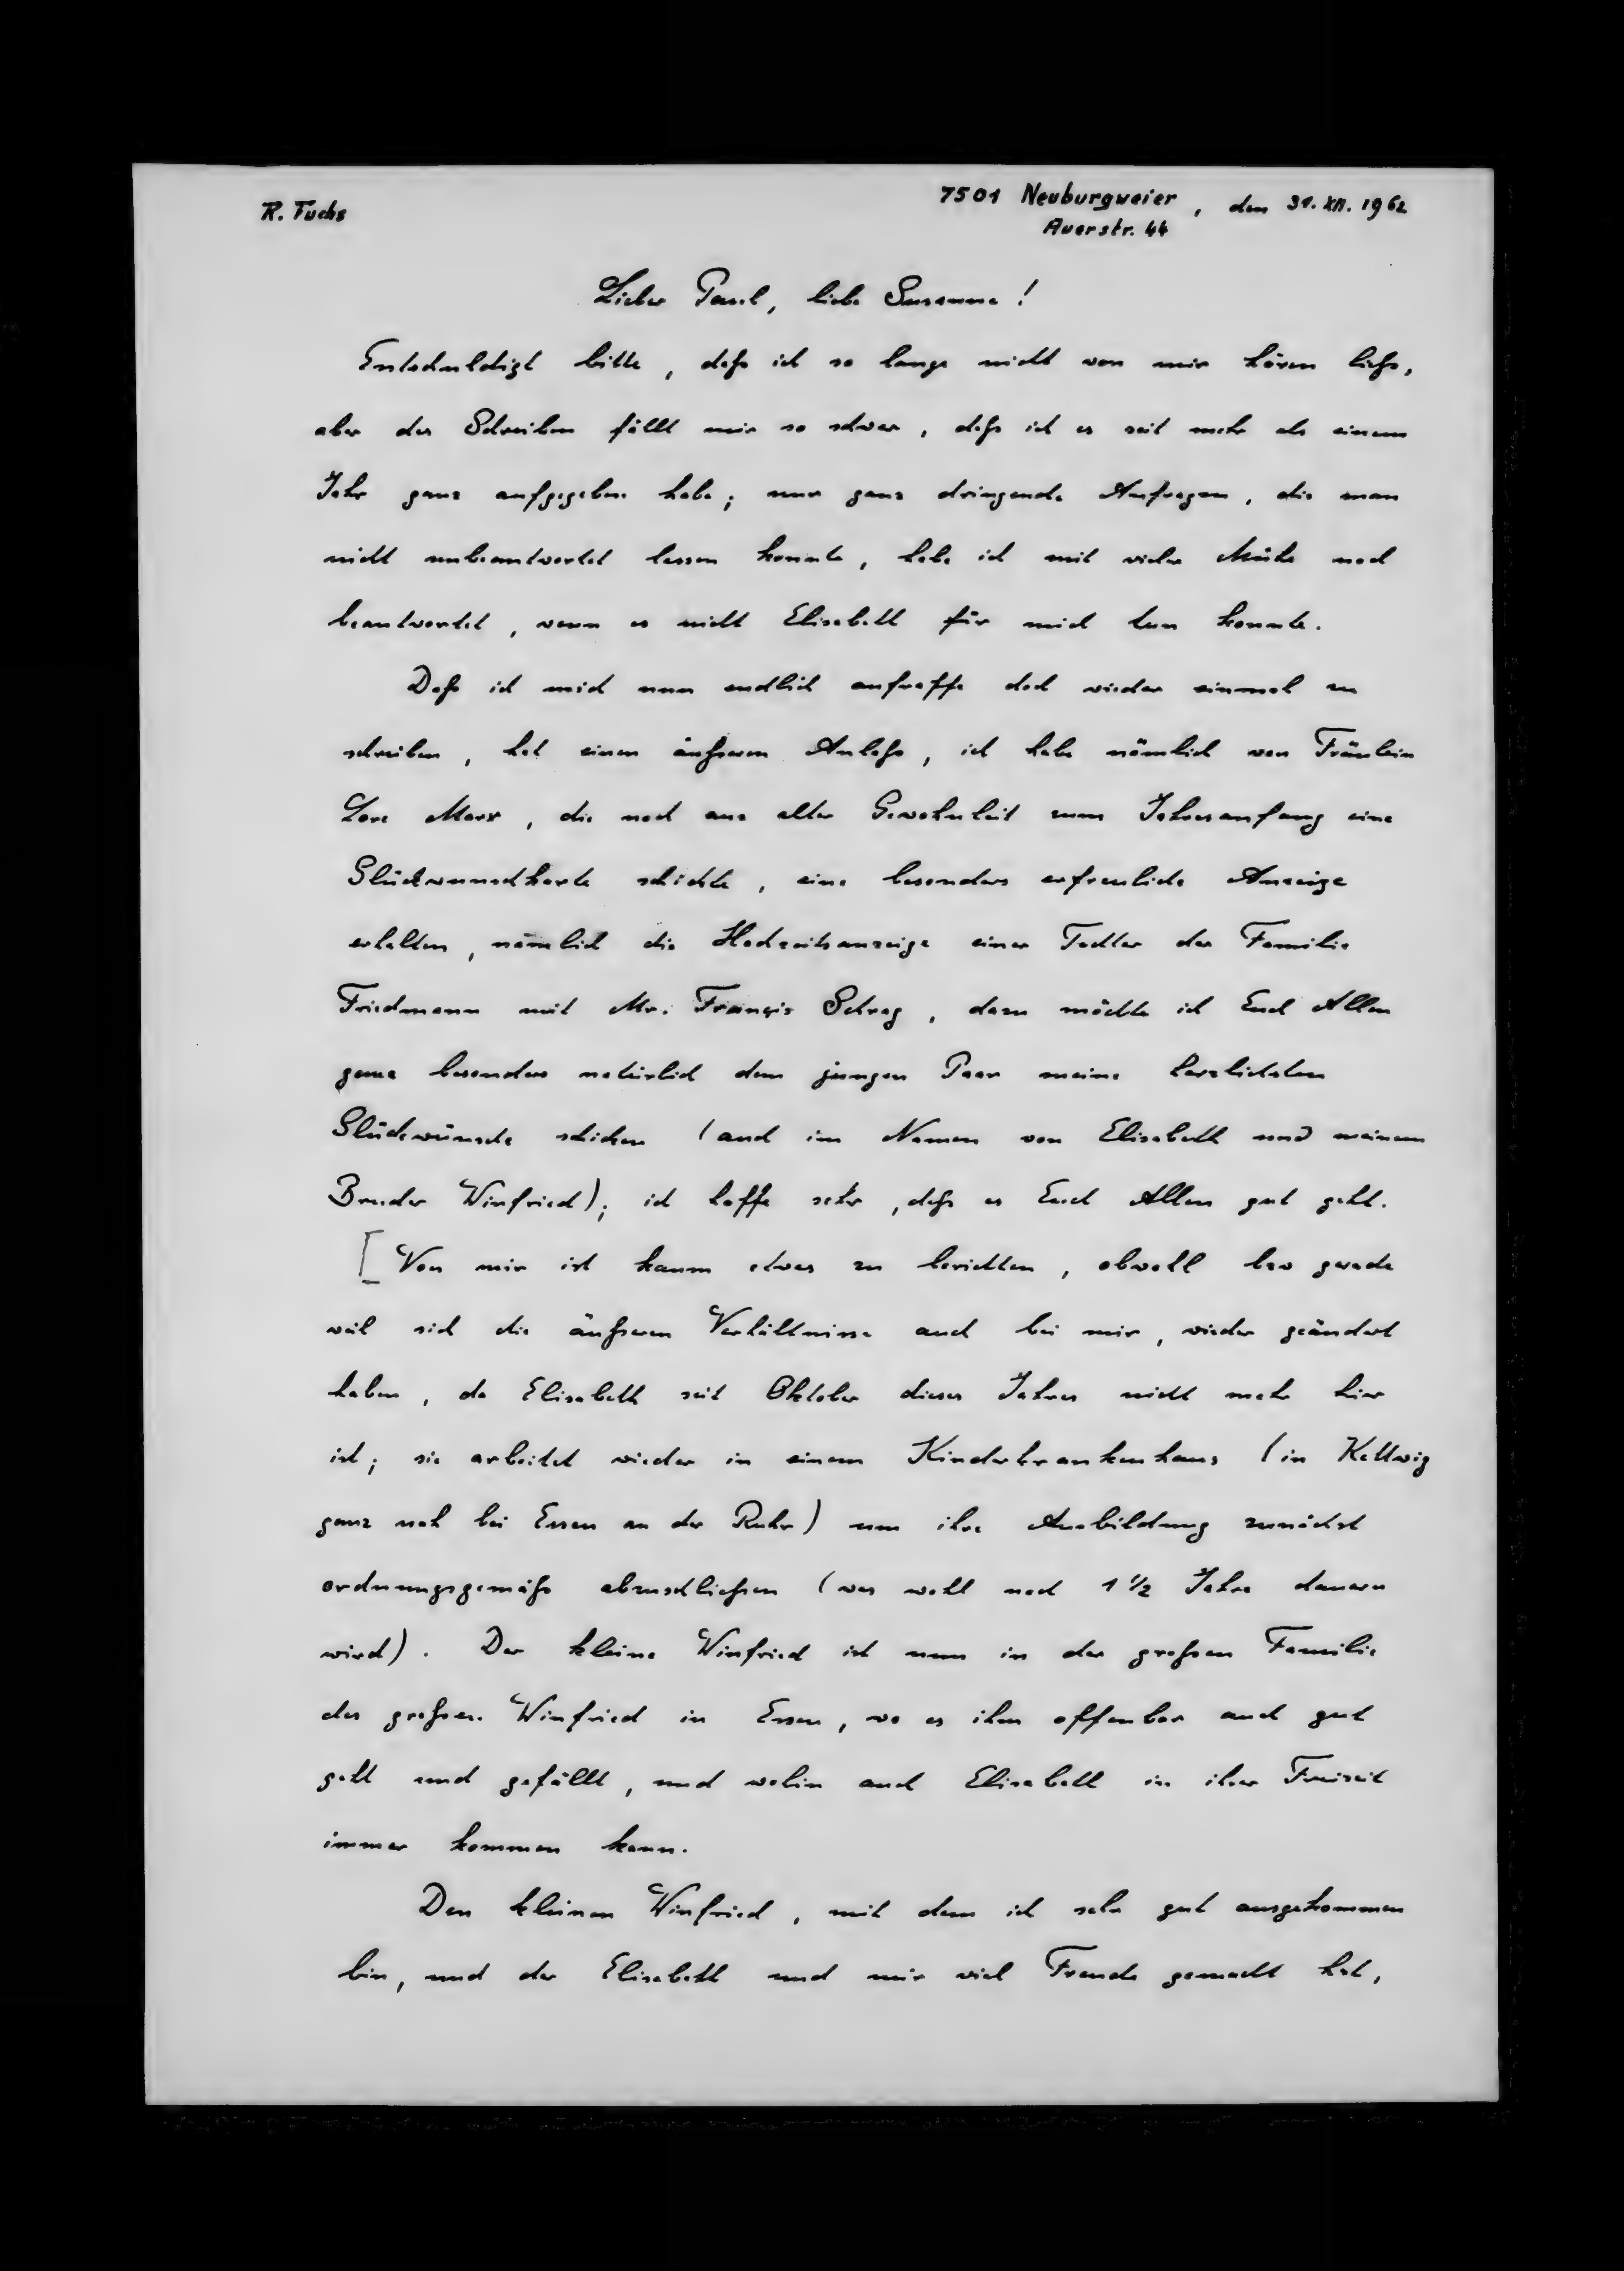 R. Fuchs
7501 Neuburgweier, den 31. XII. 1962
Auerstr. 44
Lieber Paul, liebe Susanne!
Entschuldigt bitte, daß ich so lange nicht von mir hören ließ,
aber das Schreiben fällt mir so schwer, daß ich es seit mehr als einem
Jahr ganz aufgegeben habe; nur ganz dringende Anfragen, die man
nicht unbeantwortet lassen konnte, habe ich mit vieler Mühe noch
beantwortet, wenn es nicht Elisabeth für mich tun konnte.
Daß ich mich nun endlich aufraffe doch wieder einmal zu
schreiben, hat einen äußeren Anlaß, ich habe nämlich von Fräulein
Lore Marx, die noch aus alter Gewohnheit zum Jahresanfang eine
Glückwunschkarte schickte, eine besonders erfreuliche Anzeige
erhalten, nämlich die Hochzeitsanzeige einer Tochter der Familie
Friedmann mit Mr. Françis Schrag, dazu möchte ich Euch Allen
ganz besonders natürlich dem jungen Paar meine herzlichsten
Glückwünsche schicken (auch im Namen von Elisabeth und meinem
Bruder Winfried); ich hoffe sehr, daß es Euch Allen gut geht.
[Von mir ist kaum etwas zu berichten, obwohl bzw gerade
weil sich die äußeren Verhältnisse auch bei mir, wieder geändert
haben, da Elisabeth seit Oktober dieses Jahres nicht mehr hier
ist; sie arbeitet wieder in einem Kinderkrankenhaus (in Kettwig
ganz nah bei Essen an der Ruhr) um ihre Ausbildung zunächst
ordnungsgemäß abzuschließen (was wohl noch 1 1/2 Jahre dauern
wird). Der kleine Winfried ist nun in der großen Familie
des großen Winfried in Essen, wo es ihm offenbar auch gut
geht und gefällt, und wohin auch Elisabeth in ihrer Freizeit
immer kommen kann.
Den kleinen Winfried, mit dem ich sehr gut ausgekommen
bin, und der Elisabeth und mir viel Freude gemacht hat,